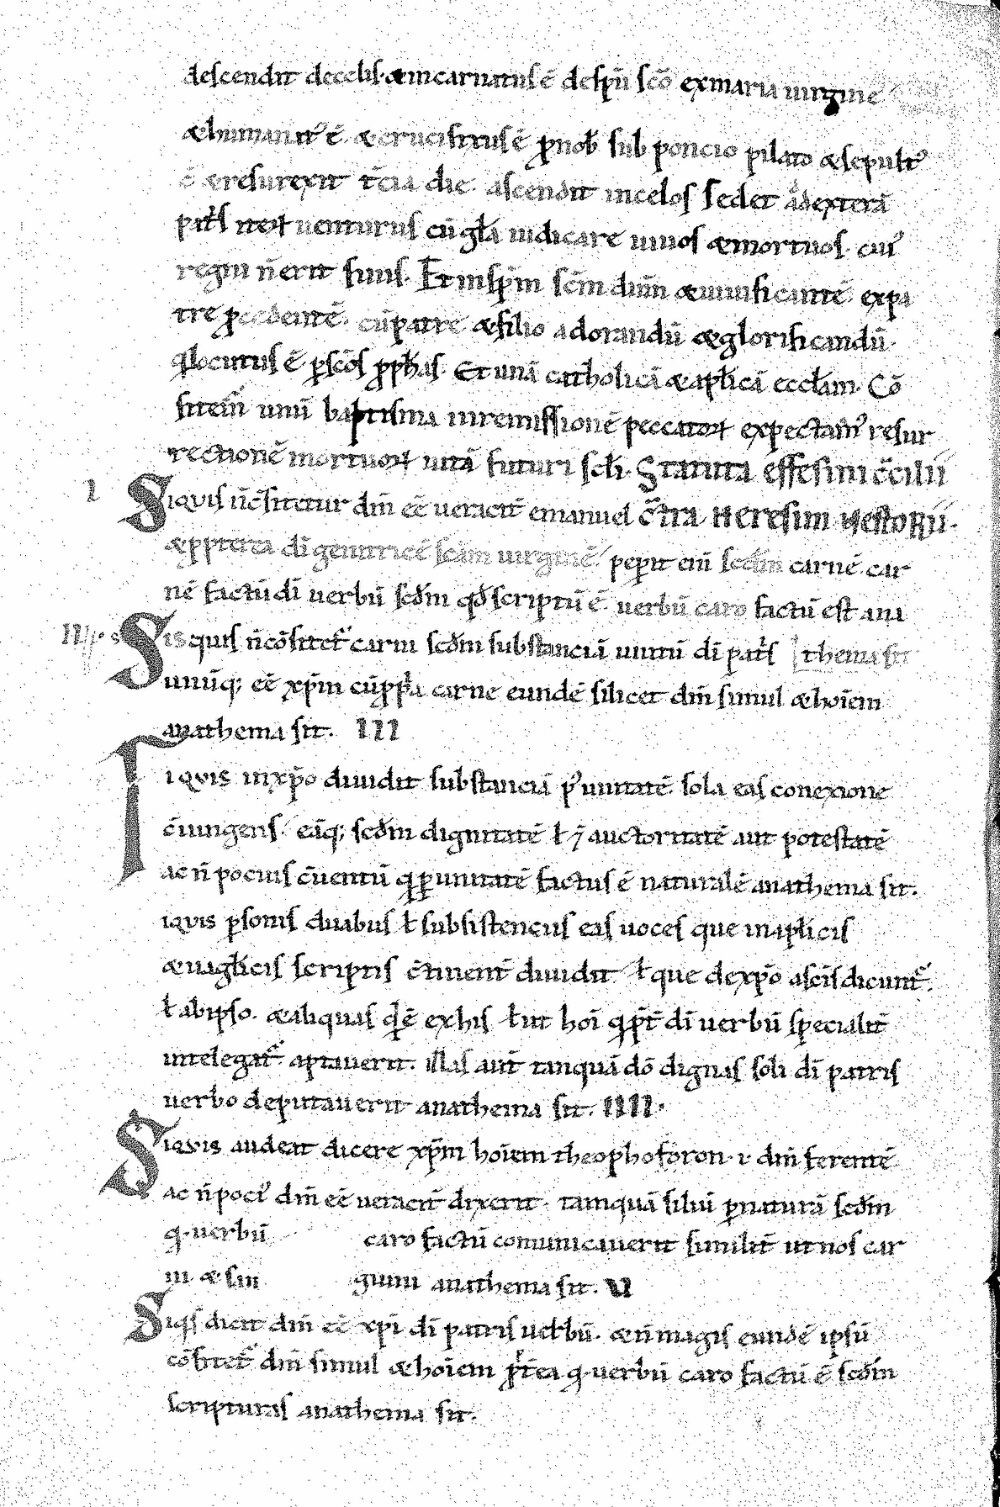 descendit decelis· & incarnatus ē despū scō exmaria uirgine
& humanat᾽ ē· & crucifixus ē pro nob sub poncio pilato & sepult᾽
ē & resurexit tcia die· ascendit incelos sedet ad dexterā
patris iterꝝ uenturus cū gła iudicare uiuos & mortuos· cui᾽
regni n̄ erit finis· Et inspm̄ scm̄ dnm̄ & uiuificantē· expa
tre procedentē· cū patre & filio adorandū & glorificandū·
q locutus ē p scōs pphas· Et unā catholicā & aplicā eccłam· Cō
fitem᾽ unū baptisma inremissionē peccatoꝝ expectam᾽ resur
rectionē mortuoꝝ uitā futuri scłi· Statuta effesini c̄cilii
I Siquis n̄ c̄fitetur dm̄ eē ueracit̄ emanuel c̄tra heresim nestorii·
& ppterea di genitricē scām uirginē· peperit eni scdm̄ carnē· car
nē factū di uerbū scdm̄ qd̄ scriptū ē· uerbū caro factū est ana
Sis quis n̄ cōfitet᾽ carni scdm̄ substanciā unitū di patris thema sit
unūq; eē xpm̄ cū ppria carne eundē silicet dm̄ simul & hoīem
anathema sit· III
iquis inxpo diuidit substanciā p᾽ unitatē· sola eas conexione
c̄iungens· eāq; scdm̄ dignitatē ł ⁊ auctoritatē aut potestatē
ac n̄ pocius c̄uentū q p unitatē factus ē naturalē anathema sit·
iquis psonis duabus ł subsistenciis eas uoces que inaplicis
& uagłicis scriptis c̄tinent̄ diuidit ł que dexpo ascis dicunt᾽·
ł abipso· & aliquas qdē exhis ł ut hoi q pt̄ di uerbū specialit̄
intelegat᾽ aptauerit· Illas aut̄ tanquā dō dignas soli di patris
uerbo deputauerit anathema sit· IIII·
Siquis audeat dicere xpm̄ hoīem theophoforon· i· dm̄ ferentē
ac n̄ poci᾽ dm̄ eē ueracit̄ dixerit· tamquā filiū p naturā scdm̄
q· uerbū caro factū comunicauerit similit̄ ut nos car
ni & sin guini anathema sit· V
Siqis dicit dm̄ eē xpi di patris uerbū· & n̄ magis eundē ipsū
cōfitet᾽ dm̄ simul & hoīem pt̄ea q· uerbū caro factū ē scdm̄
scripturas anathema sit·